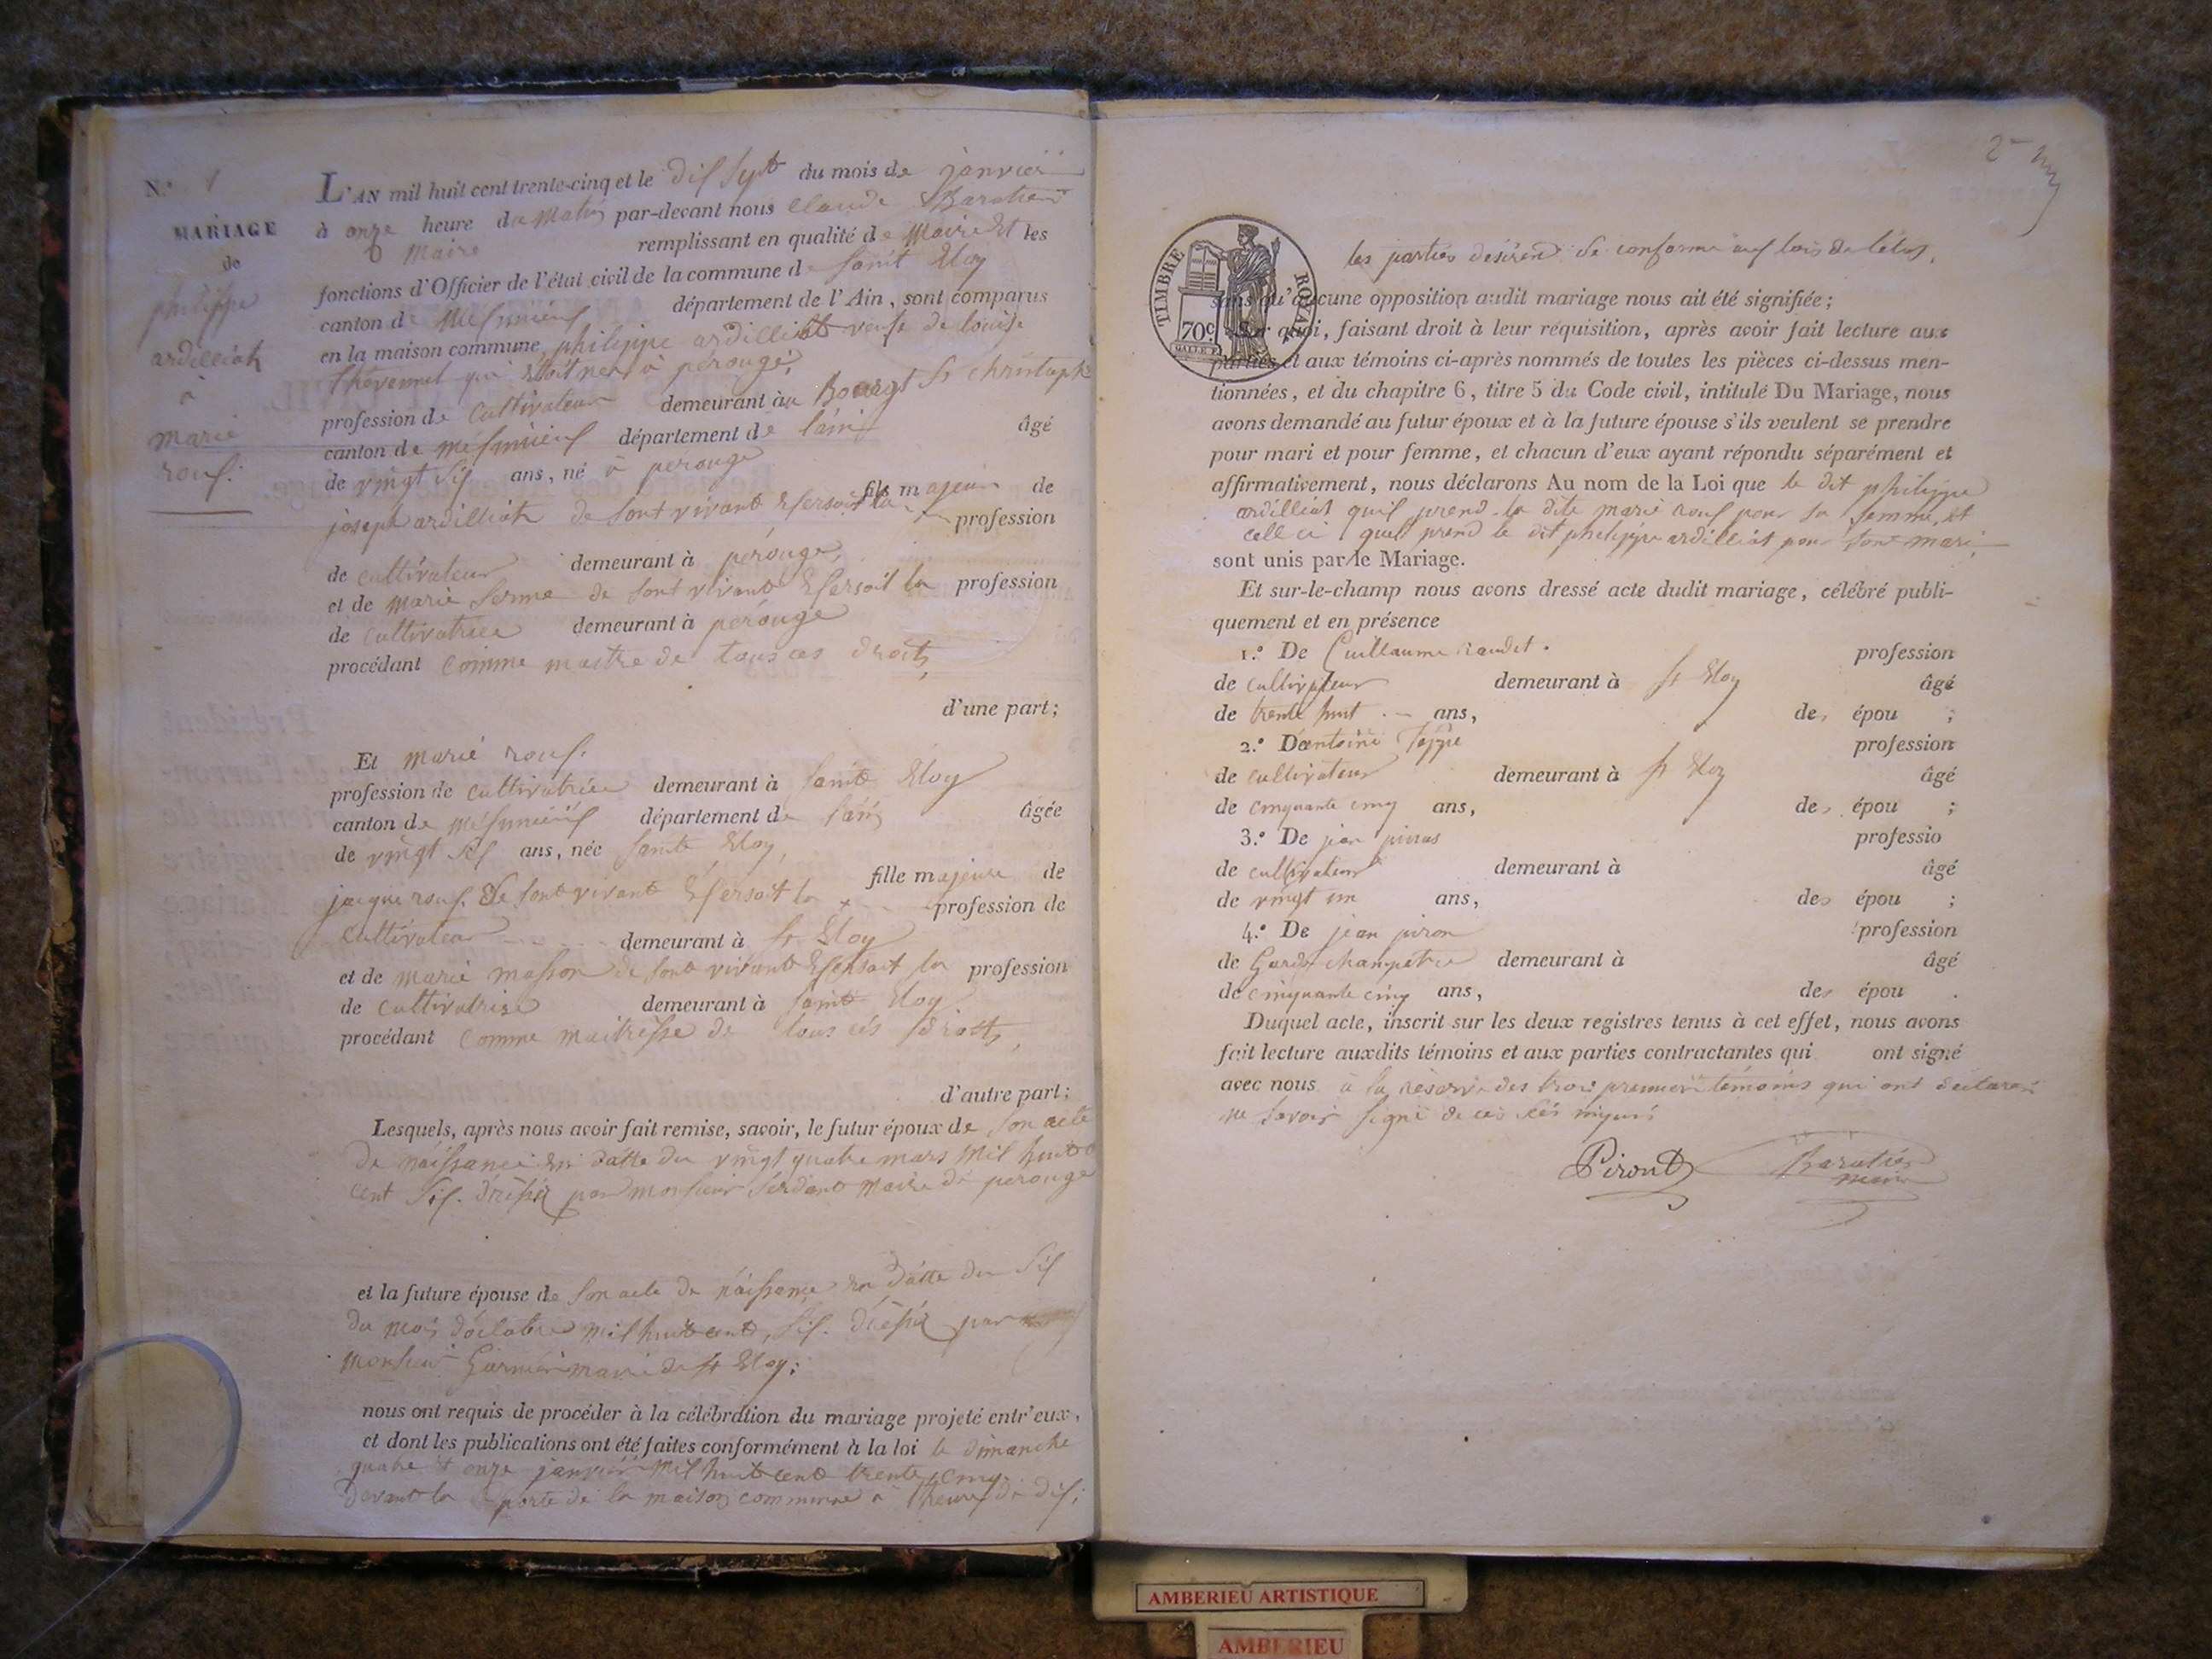 N.º 1
MARIAGE
de
philippe
ardilliat
à
marie
rouf.
L'AN mil huit cent trente-cinq et le dif sept du mois de janvier
à onze heure du matin par-devant nous claude Baratier
Maire remplissant en qualité de Maire et les
fonctions d'Officier de l'état civil de la commune de saint Eloy
canton de département de l'Ain, sont comparus
en la maison commune philippe ardilliat veuf de louise
thevennet qui à pérouge,
profession de cultivateur demeurant à Bourgt st christophe
canton de département de l'ain âgé
de vingt sif ans, né à perouge
fils majeur de
joseph ardilliat de sont vivant profession
de cultivateur demeurant à pérouge,
et de marie de sont vivant profession
de cultivatrice demeurant à pérouge
procédant comme maitre de tous ces droits,
d'une part;
Et marie rouf.
profession de cultivatrice demeurant à sainte Eloy
canton de département de l'ain âgée
de vingt ans, née sainte Eloy,
fille majeure de
jacque rouf. de sont vivant profession de
cultivateur demeurant à st Eloy
et de marie masson de sont vivant profession
de cultivatrise demeurant à sainte Eloy
procédant comme maitresse de tous ces droits,
d'autre part;
Lesquels, après nous avoir fait remise, savoir, le futur époux de son acte
de naissance en datte du vingt quatre mars mil huit
cent sif. par monsieur maire de perouge
et la future épouse de son acte de naissance en datte du sif
du mois d'octobre mil huit cent, sif. par
monsieur Garnier maire de st Eloy;
nous ont requis de procéder à la célébration du mariage projeté entr'eux,
et dont les publications ont été faites conformément à la loi le dimanche
quatre et onze janvier mil huit cent trente cinq
devant la porte de la maison commune à l'heure de dif;
2
les parties desirent se conforme auf lois de l'état,
TIMBRE ROYAL
70c
sans qu'aucune opposition audit mariage nous ait été signifiée;
Sur quoi, faisant droit à leur réquisition, après avoir fait lecture aux
parties et aux témoins ci-après nommés de toutes les pièces ci-dessus men-
tionnées, et du chapitre 6, titre 5 du Code civil, intitulé Du Mariage, nous
avons demandé au futur époux et à la future épouse s'ils veulent se prendre
pour mari et pour femme, et chacun d'eux ayant répondu séparément et
affirmativement, nous déclarons Au nom de la Loi que le dit philippe
ardilliat quil prend la dite marie rouf pour sa femme, et
celle ci quel prend le dit philippe ardilliat pour sont mari,
sont unis par le Mariage.
Et sur-le-champ nous avons dressé acte dudit mariage, célébré publi-
quement et en présence
1.º De Guillaume profession
de cultivateur demeurant à st Eloy âgé
de trente huit ans, des épou ;
2.º D'antoine profession
de cultivateur demeurant à st Eloy âgé
de cinquante cinq ans, des épou ;
3.º De jean professio
de cultivateur demeurant à âgé
de vingt un ans, des épou ;
4.º De jean piron profession
de Garde champetre demeurant à âgé
de cinquante cinq ans, des épou .
Duquel acte, inscrit sur les deux registres tenus à cet effet, nous avons
fait lecture auxdits témoins et aux parties contractantes qui ont signé
avec nous à la réserve des trois premiers témoins qui ont déclaré
ne savoir signé de ces
Piront Baratier
maire
AMBERIEU ARTISTIQUE
AMBERIEU